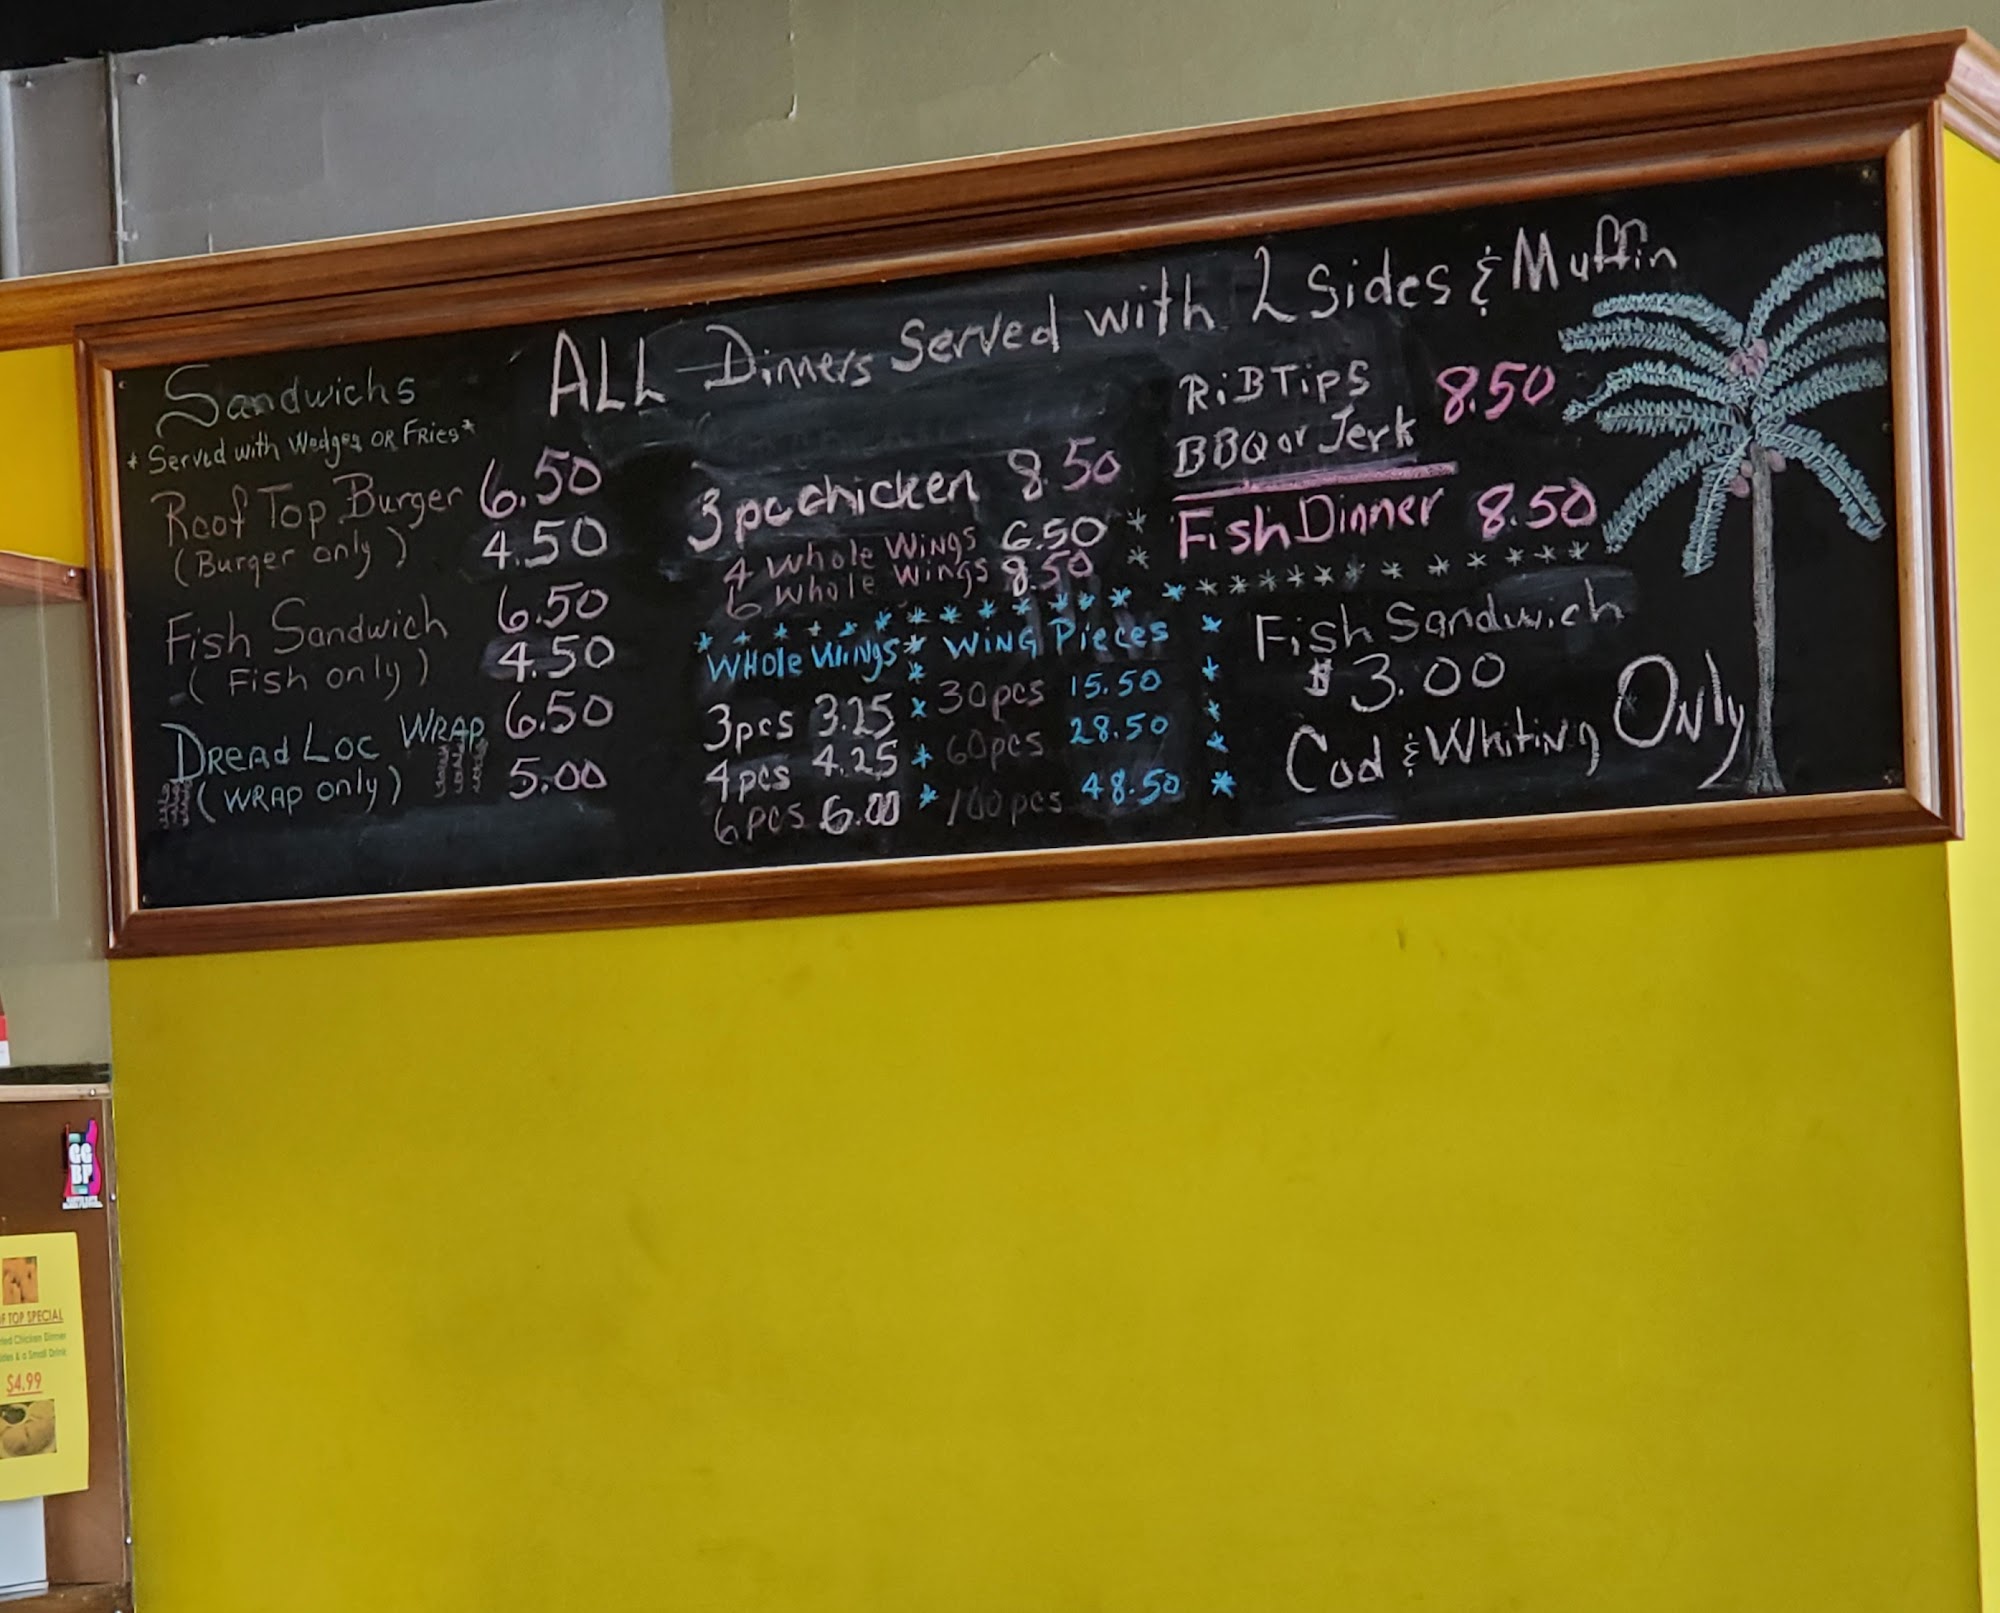 ALL Dinners Served with 2 Sides & Muffin
Sandwichs
*Served with Wedges OR FRies*
Roof Top Burger 6.50
(Burger only) 4.50
Fish Sandwich 6.50
(Fish only) 4.50
DReaD Loc WRAP 6.50
(WRAP only) 5.00
3pc chicken 8.50
4 whole Wings 6.50
6 whole Wings 8.50
WHole Wings
3pcs 3.25
4pcs 4.25
6pcs 6.00
WING Pieces
30pcs 15.50
60pcs 28.50
100pcs 48.50
RiB Tips
BBQ or Jerk 8.50
Fish Dinner 8.50
Fish Sandwich
$3.00
Cod & Whiting Only
GG
BF
TOP SPECIAL
Chicken Dinner
& a Small Drink
$4.99